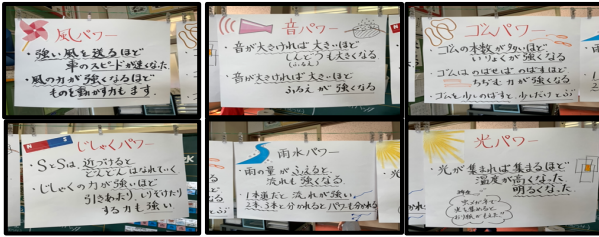 風パワー
・強い風を送るほど
車のスピードが速くなった
・風の力が強くなるほど
ものを動かす力もます
音パワー
・音が大きければ大きいほど
しんどうも大きくなる
(ふるえ)
・音が大きければ大きいほど
ふるえが強くなる
ゴムパワー
・ゴムの本数が多いほど
いりょくが強くなる
・ゴムはのばせばのばすほど
ちぢむ力が強くなる
・ゴムを少しのばすと、少しだけとぶ
じしゃくパワー
・SとSは、近づけると
どんどんはなれていく
・じしゃくの力が強いほど
引きあたり、しりぞけたり
する力も強い
雨水パワー
・雨の量がふえると、
流れも強くなる
1本道だと流れが強い
2本、3本と分かれるとパワーも分かれる
光パワー
・光が集まれば集まるほど
温度が高くなった
明るくなった
光を集めると